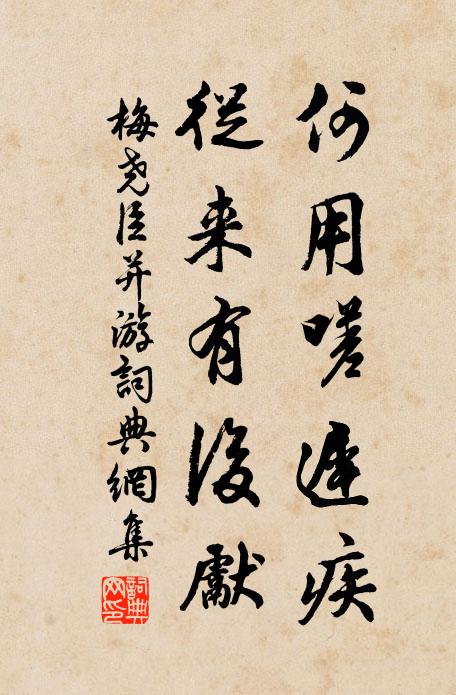 何用嗟遲疾
從来有後獻
梅尧臣并游詞典網集
詞典網印